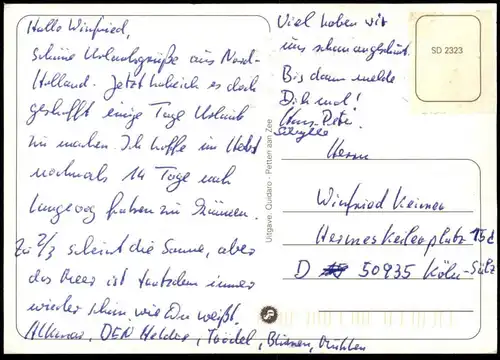 Hallo Winfried,
schöne Urlaubsgrüße aus Nord-
Holland. Jetzt habe ich es doch
geschafft einige Tage Urlaub
zu machen. Ich hoffe im Herbst
nochmals 14 Tage nach
Langeoog fahren zu können.
Zu 2/3 scheint die Sonne, aber
das Meer ist trotzdem immer
wieder schön, wie Du weißt.
Alkmar, DEN Helder, Blumen,
Viel haben wir
uns schon angeschaut.
Bis dann melde
Dich mal!
Hans-Peter
Sibylle
SD 2323
Uitgave: Quidaro - Petten aan Zee
Herrn
Winfried
Hermeskeilerplatz 15d
D 50935 Köln-Sülz